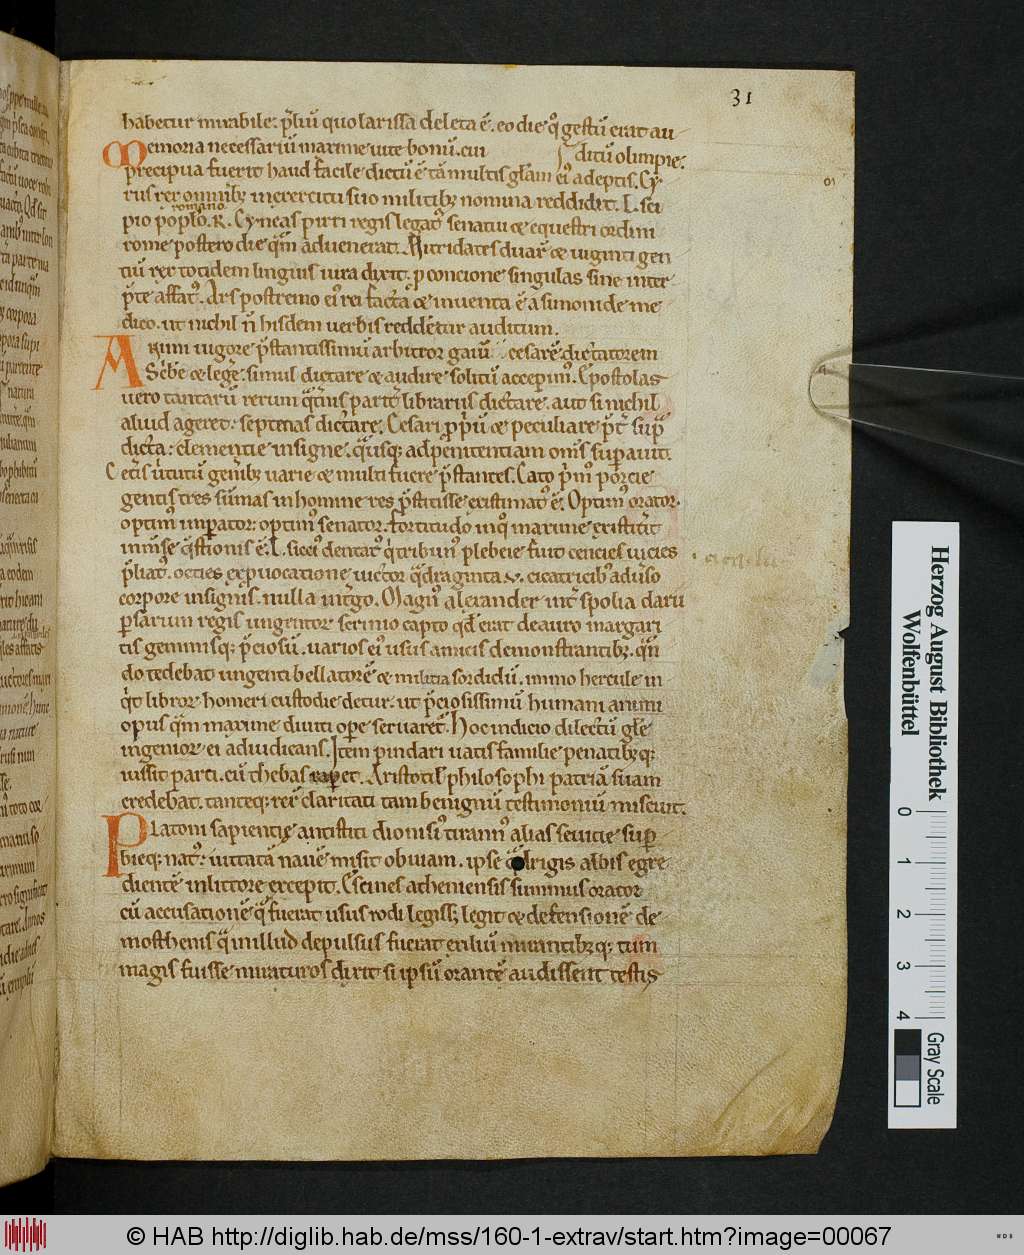 31
habetur mirabile. p̄liū quo larissa deleta ē. eo die q̊ gestū erat au
ditū olimpie.
Memoria necessariū maxime uite bonū. cui
precipua fuerit haud facile dictū ē tā multis gl̄am ei᾽ adeptis. Cy
rus rex omnibꝫ in exercitu suo militibꝫ nomina reddidit. L. sci
romano
pio pop̄lo. R. Cyneas pirri regis legat᾽ senatui & equestri ordini
rome postero die q̄m aduenerat. Mitridates duarū & uiginti gen
tiū rex totidem linguis iura dixit. p concione singulas sine inter
p̄te affat᾽. Ars postremo ei᾽ rei facta & inuenta ē a simonide me
dico. ut nichil n̄ hisdem uerbis redderetur auditum.
Animi uigore p̄stantissimū arbitror gaiū cesarē dictatorem
Scribe & legē. simul dictare & audire solitū accepim᾽. Epostolas
uero tantarū rerum q̄t̄nis part̄ librariis dictare. aut si nichil
aliud ageret. septenas dictare. Cesari ꝓpriū & peculiare p̄t sup̄
dicta. clementie insigne. q̄ usqꝫ ad penitentiam om̄s superauit.
Cetis uirtutū gen̄ibꝫ uarie & multi fuere p̄stantes. Cato prim᾽ porcie
gentis tres sūmas in homine res p̄stitisse existimat᾽ ē. Optim᾽ orator.
optim᾽ imperator. optim᾽ senator. fortitudo in q᾽ maxime extitit
inm̄se q̄stionis ē. L. sicci᾽ dentat᾽ q̇ tribun᾽ plebeie fuit centies uicies
p̄liat᾽. octies ex puocatione uictor q̄draginta v. cicatricib᾽ aduerso
corpore insignis. nulla in tergo. Magn᾽ alexander int̄ spolia darii
psarum regis unguentor scrinio capto qd̄ erat de auro margari
tis gemmisqꝫ p̄ciosū. uarios ei᾽ usus amicis demonstrantibꝫ. q̄n
do tedebat ungenti bellatorē & militia sordidū. immo hercule in
q̇t libror homeri custodie detur. ut p̄ciosissimū humani animi
opus q̄m maxime diuiti opere seruaret̄. Hoc indicio dilectū gl̄e
ingenior ei adiudicans. Item pindari uatis familie penatibꝫqꝫ
iussit parci. cū thebas raperet. Aristotil᾽ philosophi patriā suam
credebat. tanteqꝫ rerū claritati tam benignū testimoniū miscuit.
Platoni sapientię antistiti dionisi᾽ tirann᾽ alias seuicie sup
bieqꝫ nat᾽. iuttatā nauē misit obuiam. ipse q̄drigis albis egre
dientē in littore excepit. Escines atheniensis summus orator
cū accusationē q̄ fuerat usus rodi legissꝫ legit & defensionē de
mosthenis q̄ in illud depulsus fuerat exiliū mirantibꝫqꝫ tum
magis fuisse miraturos dixit si ipsū orantē audissent testis
Herzog August Bibliothek
Wolfenbüttel
0 1 2 3 4
Gray Scale
© HAB http://diglib.hab.de/mss/160-1-extrav/start.htm?image=00067